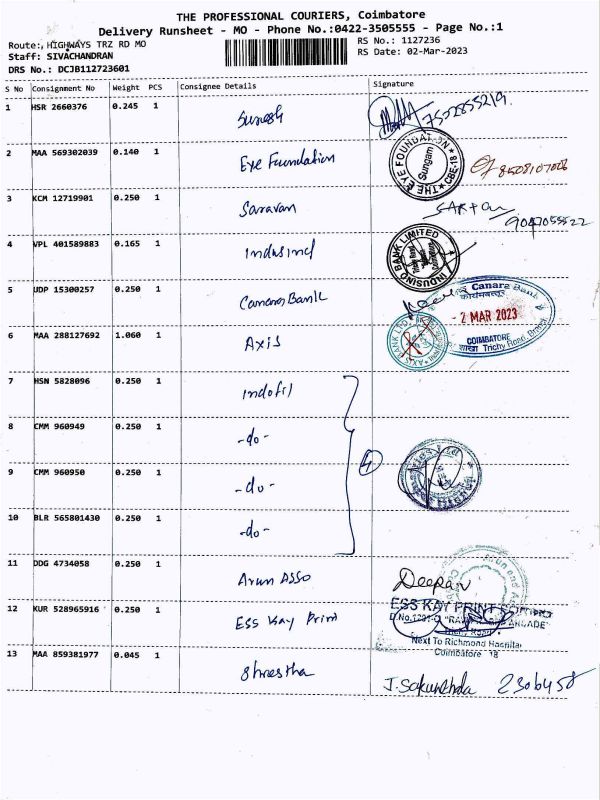 THE PROFESSIONAL COURIERS, Coimbatore
Delivery Runsheet - MO - Phone No.:0422-3505555 - Page No.:1
Route:, HIGHWAYS TRZ RD MO
RS No.: 1127236
Staff: SIVACHANDRAN
RS Date: 02-Mar-2023
DRS No.: DCJB112723601
S No Consignment No Weight PCS Consignee Details Signature
1 HSR 2660376 0.245 1 Suresh
2 MAA 569302039 0.140 1 Eye Foundation THE EYE FOUNDATION Sungam CBE-18
3 KCM 12719901 0.250 1 Saravan
4 VPL 401589883 0.165 1 Indusind INDUSIND BANK LIMITED
5 UDP 15300257 0.250 1 Canara Bank Canara Bank
- 2 MAR 2023
COIMBATORE
शाखा Trichy Road, Branch
6 MAA 288127692 1.060 1 Axis AXIS BANK LTD
7 HSN 5828096 0.250 1 Indofil
8 CMM 960949 0.250 1 -do-
4
9 CMM 960950 0.250 1 -do-
10 BLR 565801430 0.250 1 -do-
11 DDG 4734058 0.250 1 Arun Asso Deepan
12 KUR 528965916 0.250 1 Ess Kay Print ESS KAY PRINT
Next To Richmond Hospital
Coimbatore 18
13 MAA 859381977 0.045 1 Shrestha J. Sakunthla 2306458